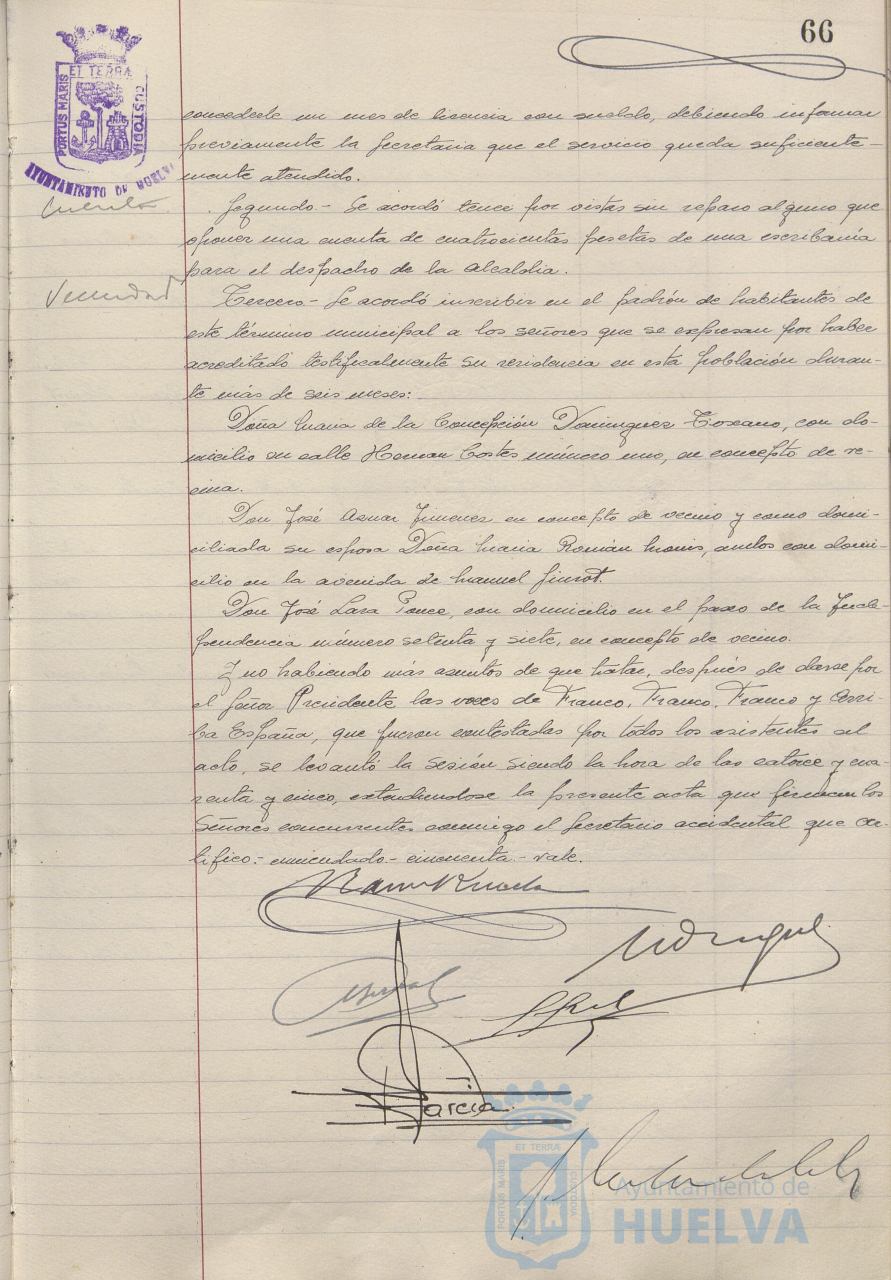 66
PORTUS MARIS ET TERRÆ CUSTODIA
AYUNTAMIENTO DE HUELVA
concederle un mes de licencia con sueldo, debiendo informar
previamente la Secretaria que el servicio queda suficiente-
mente atendido.
Cuenta
Segundo.- Se acordó tener por vistas sin reparo alguno que
oponer una cuenta de cuatrocientas pesetas de una escribanía
para el despacho de la alcaldia.
Vecindad
Tercero.- Se acordó inscribir en el padrón de habitantes de
este término municipal a los señores que se expresan por haber
acreditado testificalmente su residencia en esta población duran-
te más de seis meses:
Doña Maria de la Concepción Dominguez Toscano, con do-
micilio en calle Hernan Cortes número uno, en concepto de ve-
cina.
Don José Aznar Jimenez en concepto de vecino y como domi-
ciliada su esposa Doña Maria Román, ambos con domi-
cilio en la avenida de Manuel Siurot.
Don José Lara Ponce, con domicilio en el paseo de la Inde-
pendencia número setenta y siete, en concepto de vecino.
Y no habiendo más asuntos de que tratar, después de darse por
el Señor Presidente las voces de Franco, Franco, Franco y Arri-
ba España, que fueron contestadas por todos los asistentes al
acto, se levantó la sesión siendo la hora de las catorce y cua-
renta y cinco, extendiendose la presente acta que firman los
Señores concurrentes conmigo el Secretario accidental que cer-
tifico:- enmendado.- cincuenta.- vale.
Garcia
ET TERRÆ
PORTUS MARIS
CUSTODIA
Ayuntamiento de
HUELVA